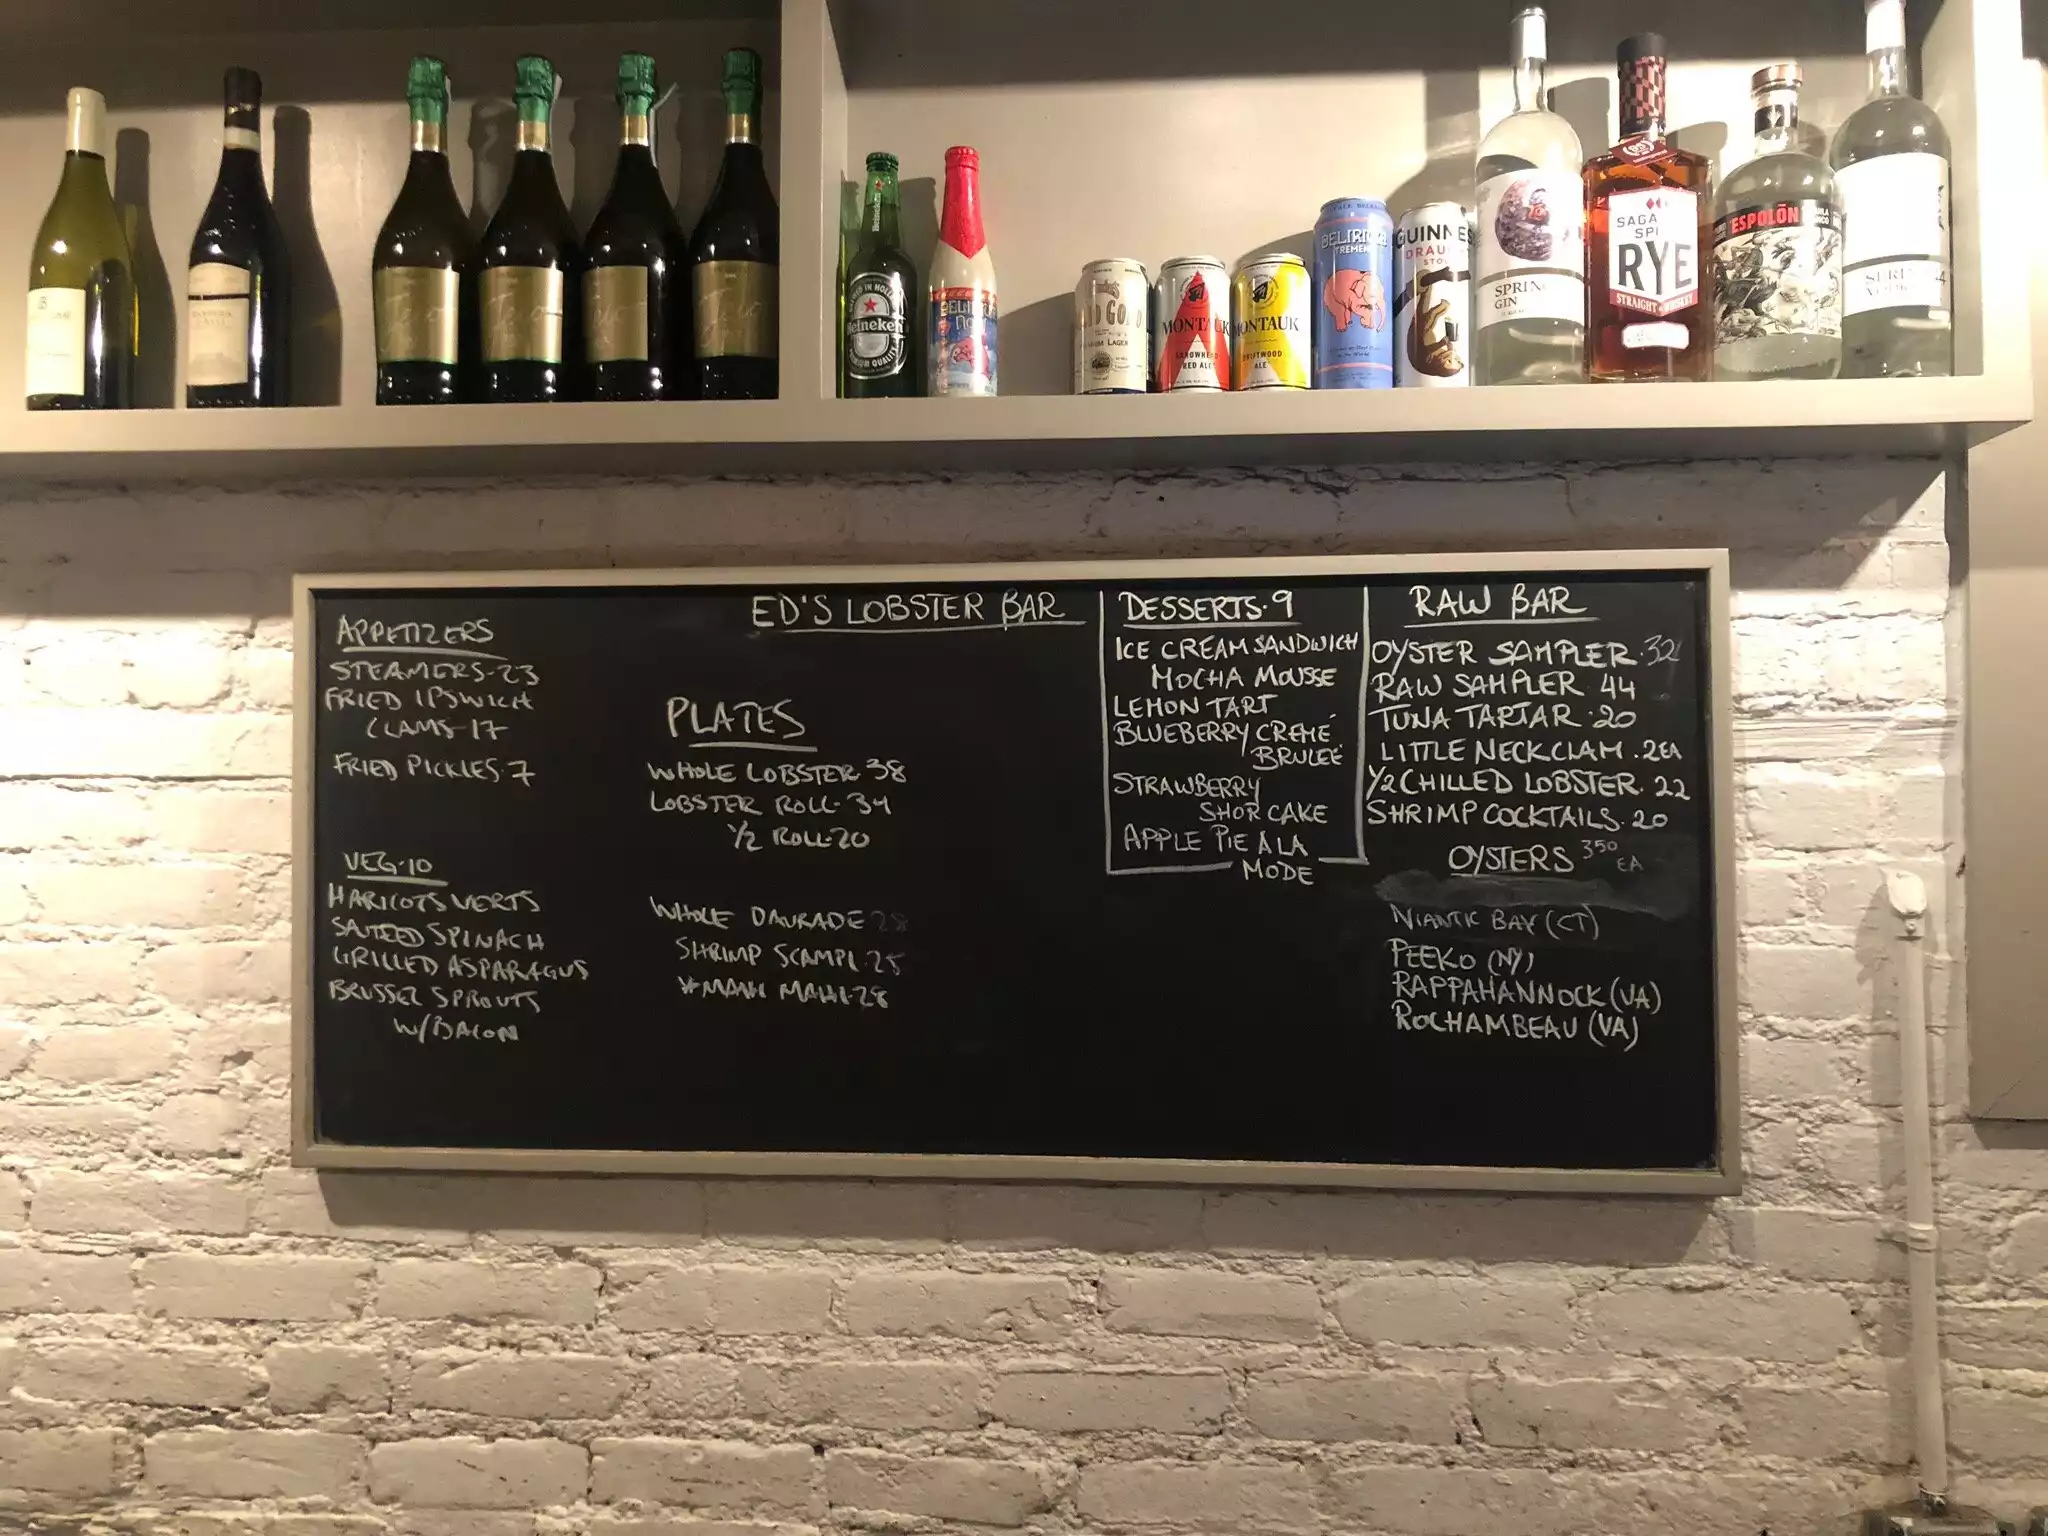 Heineken
MONTAUK
ARROWHEAD
RED ALE
MONTAUK
DRIFTWOOD
ALE
DELIRIUM
TREMENS
GUINNESS
DRAUGHT
STOUT
GIN
SAGA
SPI
RYE
STRAIGHT WHISKEY
ESPOLÒN
ED'S LOBSTER BAR
APPETIZERS
STEAMERS-23
FRIED IPSWICH
CLAMS-17
FRIED PICKLES.7
VEG-10
HARICOTS VERTS
SAUTEED SPINACH
GRILLED ASPARAGUS
BRUSSEL SPROUTS
W/BACON
PLATES
WHOLE LOBSTER 38
LOBSTER ROLL-34
1/2 ROLL-20
WHOLE DAURADE 28
SHRIMP SCAMPI.25
*MAHI MAHI.28
DESSERTS.9
ICE CREAM SANDWICH
MOCHA MOUSSE
LEMON TART
BLUEBERRY CREME
BRULEE
STRAWBERRY
SHORCAKE
APPLE PIE A LA
MODE
RAW BAR
OYSTER SAMPLER.32
RAW SAMPLER.44
TUNA TARTAR.20
LITTLE NECK CLAM.2EA
1/2 CHILLED LOBSTER.22
SHRIMP COCKTAILS.20
OYSTERS 350 EA
NIANTIC BAY (CT)
PEEKO (NY)
RAPPAHANNOCK (VA)
ROCHAMBEAU (VA)